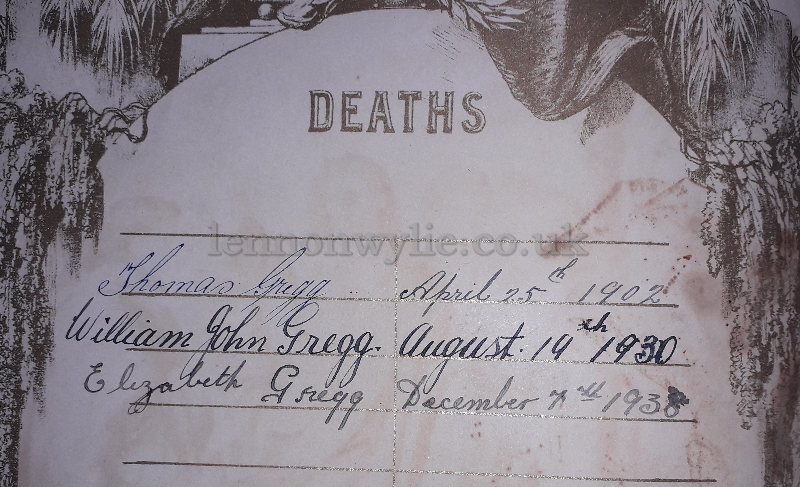 DEATHS
lennonwylie.co.uk
Thomas Gregg April 25th 1902
William John Gregg. August. 19th 1930
Elizabeth Gregg December 7th